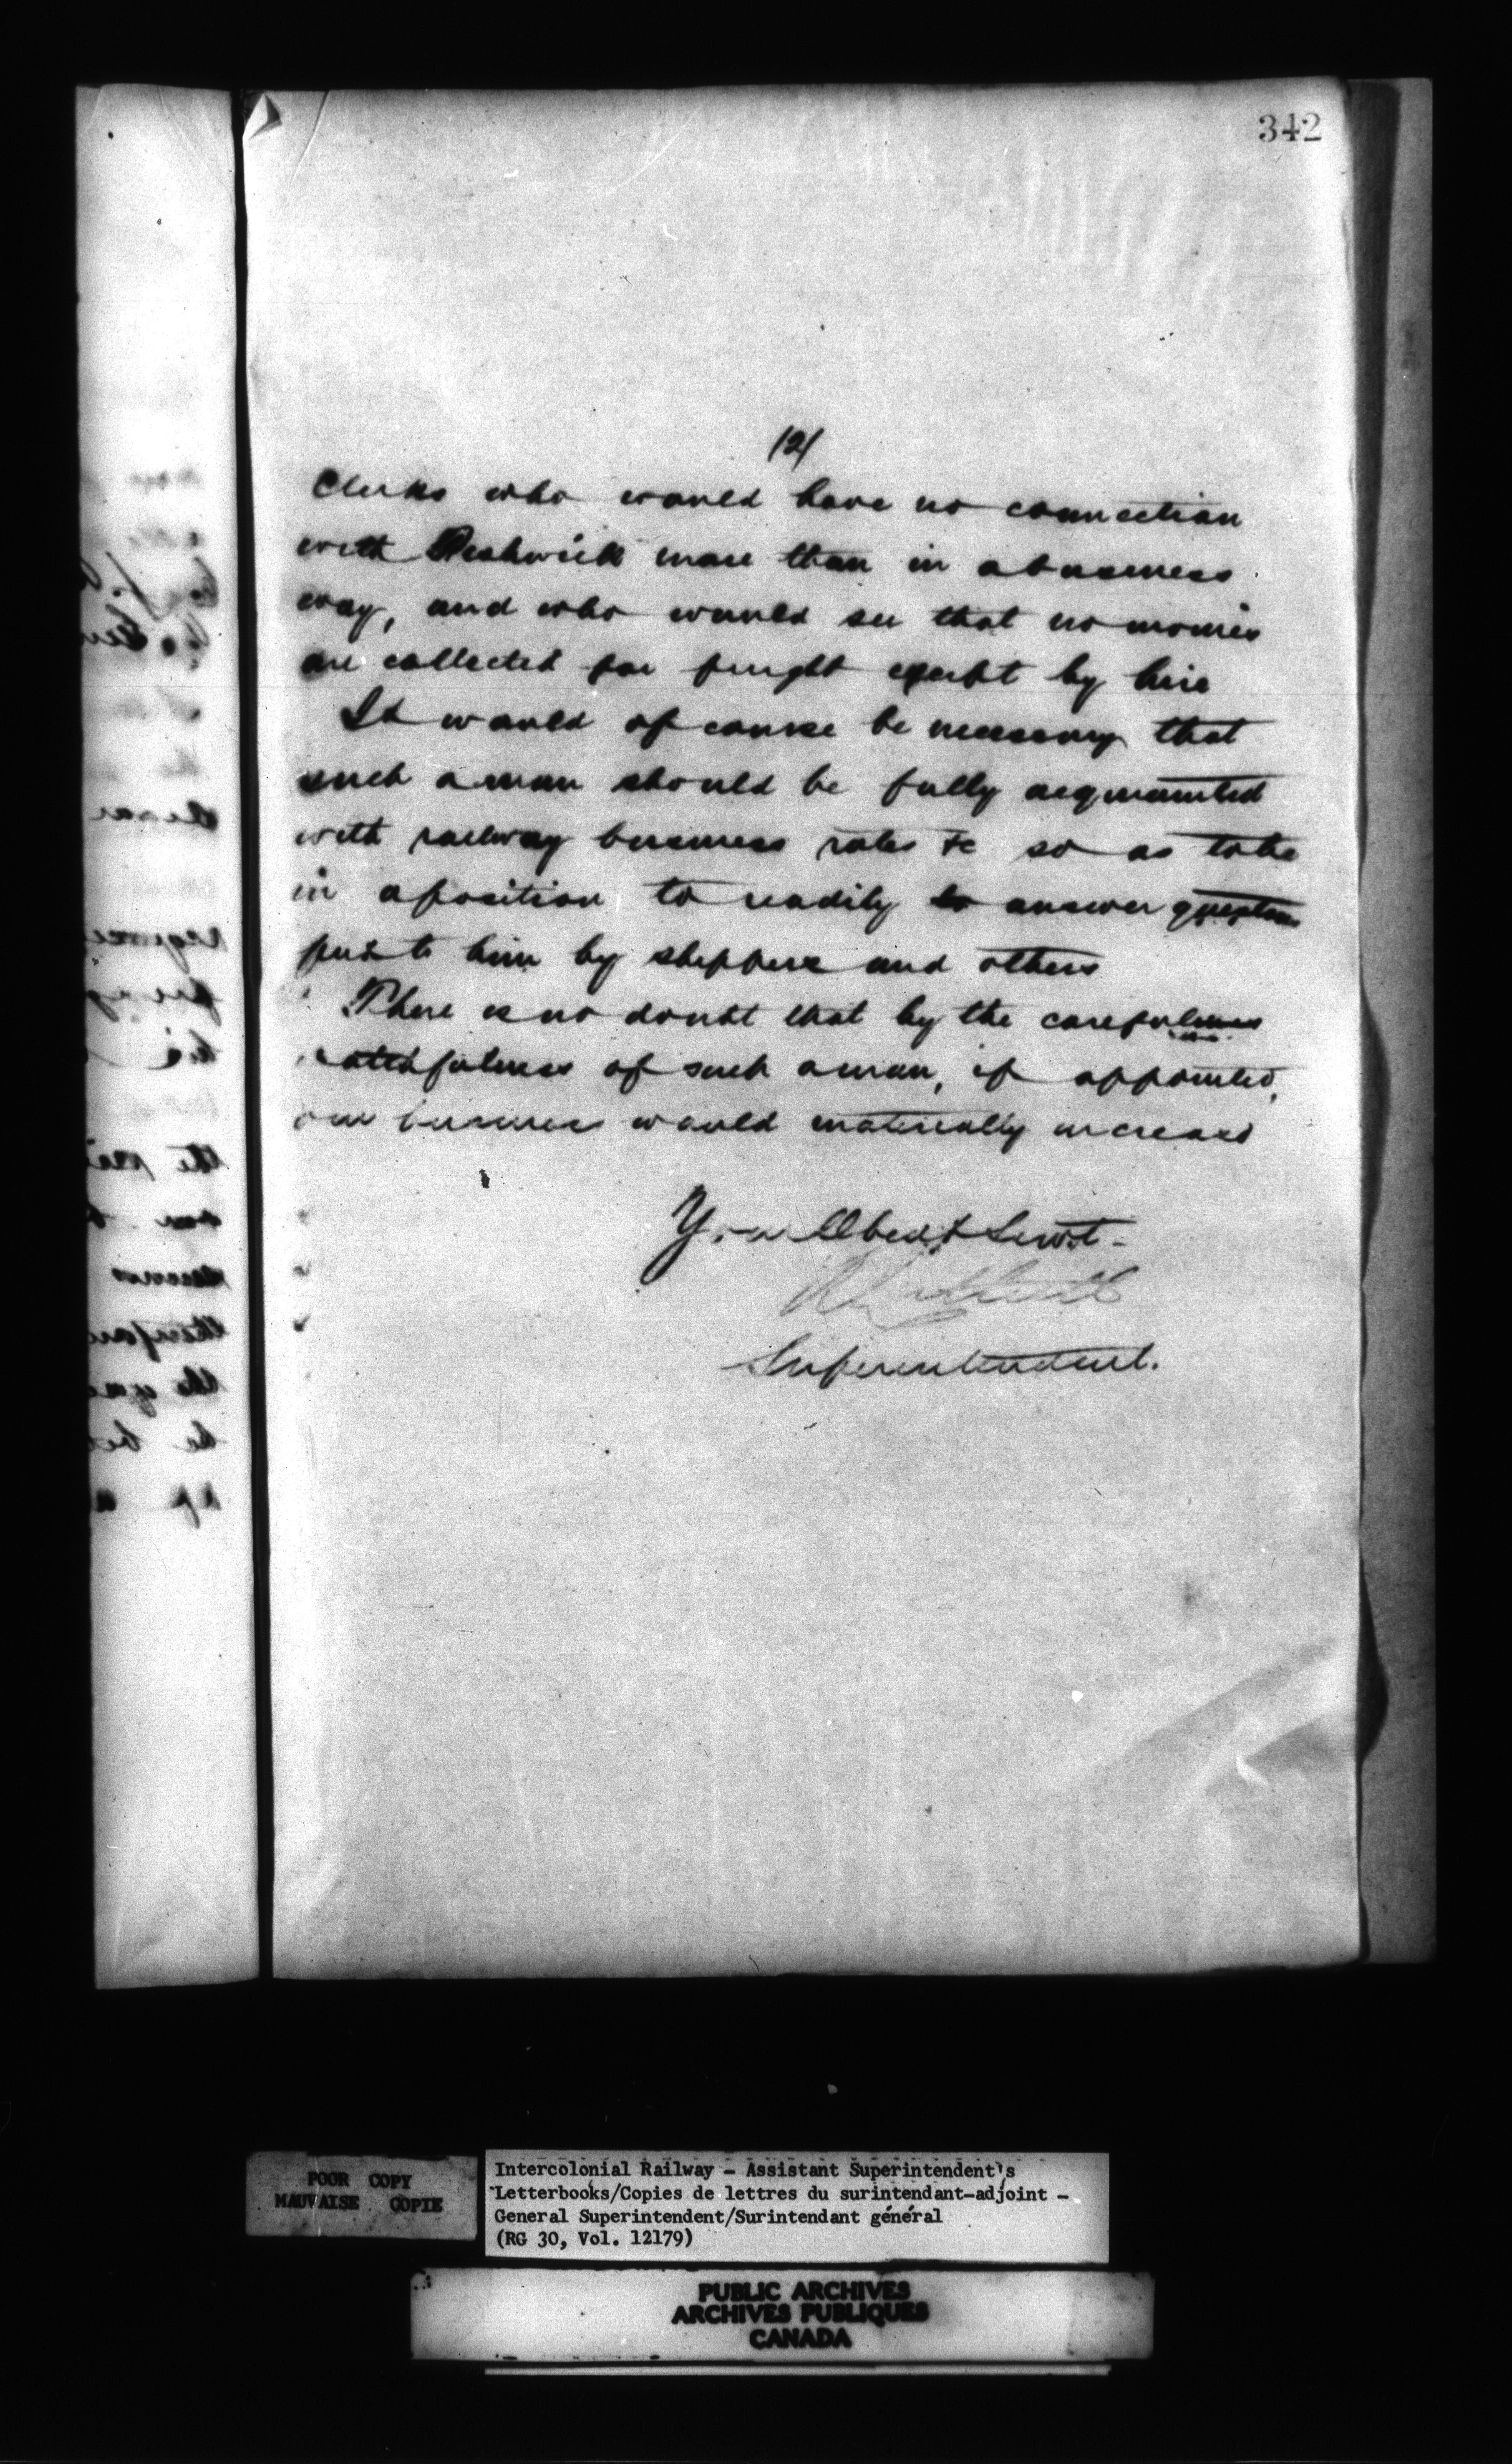 342
(2)
Clerks who would have no connection
with more than in a business
way, and who would see that no monies
are collected for freight except by him
It would of course be necessary that
such a man should be fully acquainted
with railway business rates &c so as to be
in a position to readily to answer questions
put to him by shippers and others
There is no doubt that by the carefulness
faithfulness of such a man, if appointed,
our business would materially increase
Your Obedt Servt-
Superintendent.
POOR COPY
MAUVAISE COPIE
Intercolonial Railway - Assistant Superintendent's
Letterbooks/Copies de lettres du surintendant-adjoint -
General Superintendent/Surintendant général
(RG 30, Vol. 12179)
PUBLIC ARCHIVES
ARCHIVES PUBLIQUES
CANADA